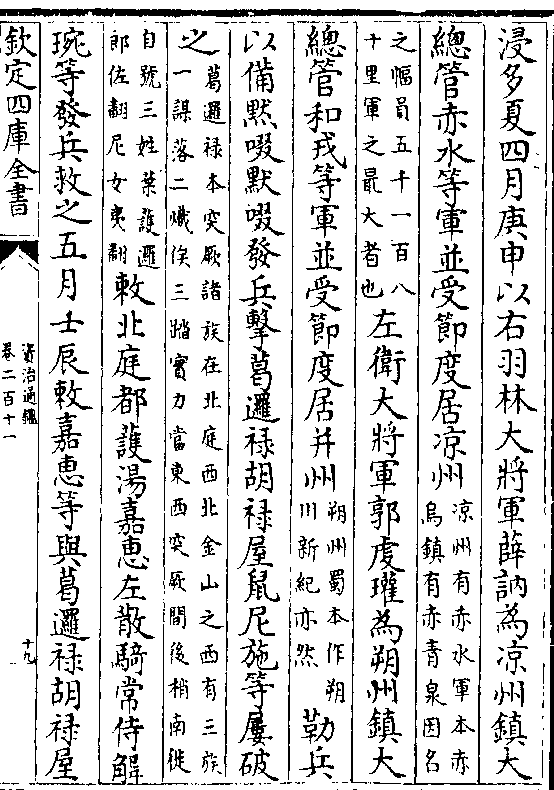 浸多夏四月庚申以右羽林大將軍薛訥為凉州鎮大
總管赤水等軍並受節度居凉州
凉州有赤水軍本赤
烏鎮有赤青泉因名
之幅員五千一百八
十里軍之最大者也
左衛大將軍郭䖍瓘為朔州鎮大
總管和戎等軍並受節度居并州
朔州蜀本作朔
川新紀亦然
勒兵
以備黙啜黙啜發兵擊葛邏禄胡禄屋鼠尼施等屢破
之
葛邏禄本突厥諸族在北庭西北金山之西有三族
一謀落二熾俟三踏實力當東西突厥間後稍南徙
自號三姓葉護邏
郎佐翻尼女夷翻
敕北庭都護湯嘉惠左散騎常侍解
琬等發兵救之五月壬辰敕嘉惠等與葛邏禄胡禄屋
欽定四庫全書
資治通鑑
卷二百十一
十九